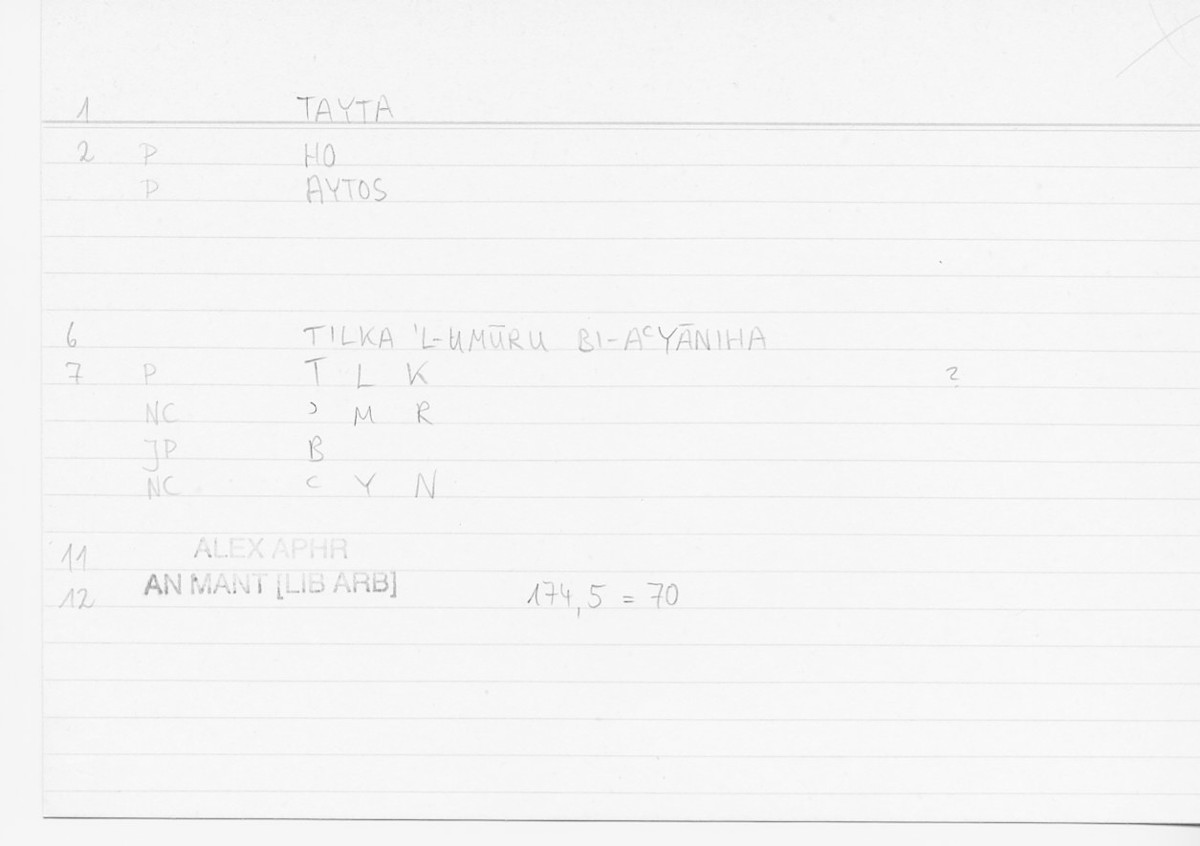 1 TAYTA
2 P HO
P AYTOS
6 TILKA 'L-UMŪRU BI-AʿYĀNIHA
7 P T L K ?
NC ʾ M R
JP B
NC ʿ Y N
11 ALEX APHR
12 AN MANT [LIB ARB] 174,5 = 70